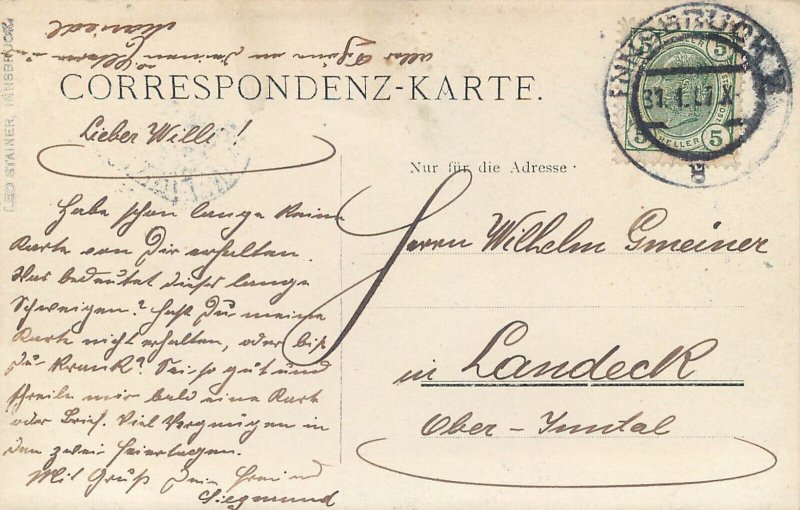 alles Schöne an Deinen l. Eltern u.
CORRESPONDENZ-KARTE.
Lieber Willi!
Habe schon lange keine
Karte von Dir erhalten.
Was bedeutet dieses lange
Schweigen? Hast Du meine
Karte nicht erhalten, oder bist
Du krank? Sei so gut und
schreibe mir bald eine Karte
oder Brief. Viel Vergnügen in
den zwei Feiertagen.
Mit Gruß Dein Freund
Siegmund
Nur für die Adresse
Herrn Wilhelm Gmeiner
in Landeck
Ober-Inntal
INNSBRUCK 2
5 5
5 HELLER 5
LEO STAINER, INNSBRUCK